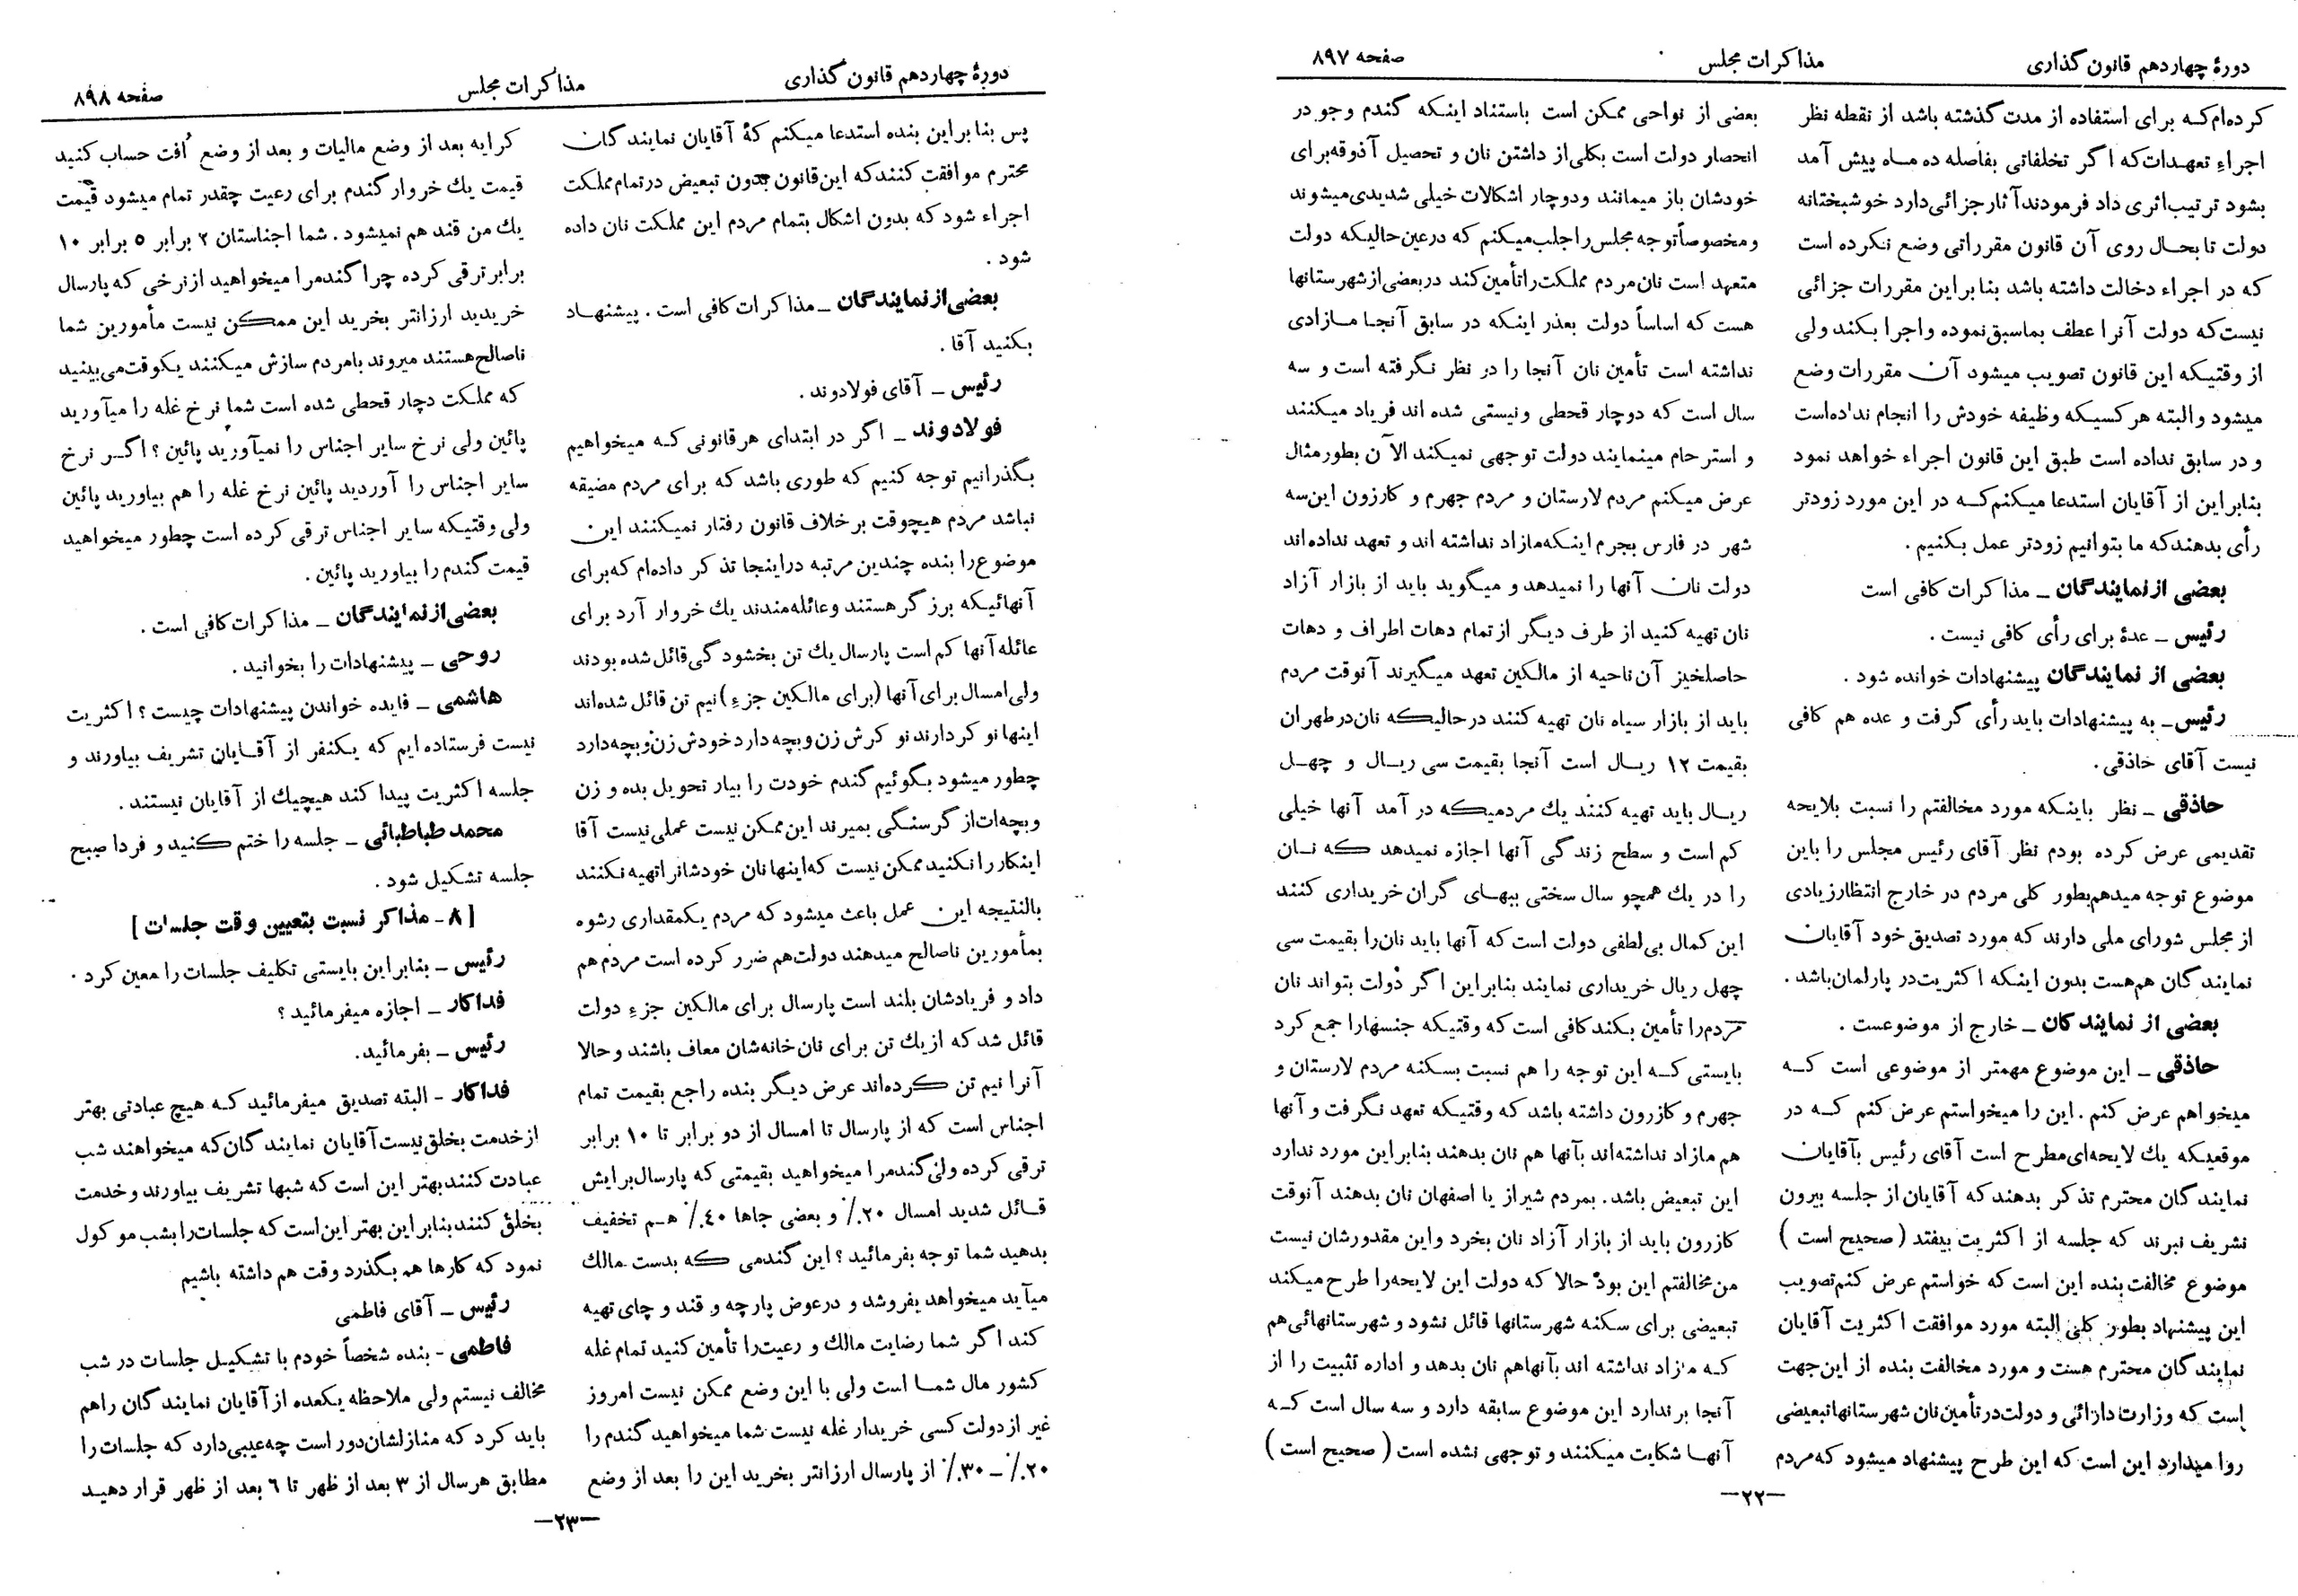 دورهٔ چهاردهم قانون گذاری
مذاکرات مجلس
صفحه ۸۹۷
کرده‌ام‌که برای استفاده از مدت گذشته باشد از نقطه نظر
اجراء تعهدات‌که اگر تخلفاتی بفاصله ده ماه پیش آمد
بشود ترتیب‌اثری داد فرمودندآثار جزائی‌دارد خوشبختانه
دولت تا بحال روی آن قانون مقرراتی وضع نکرده است
که در اجراء دخالت داشته باشد بنابراین مقررات جزائی
نیست‌که دولت آنرا عطف بماسبق‌نموده واجرا بکند ولی
از وقتیکه این قانون تصویب میشود آن مقررات وضع
میشود والبته هرکسیکه وظیفه خودش را انجام نداده‌است
و در سابق نداده است طبق این قانون اجراء خواهد نمود
بنابراین از آقایان استدعا میکنم‌که در این مورد زودتر
رأی بدهندکه ما بتوانیم زودتر عمل بکنیم .
بعضی ازنمایندگان ـ مذاکرات کافی است
رئیس ـ عدهٔ برای رأی کافی نیست .
بعضی از نمایندگان پیشنهادات خوانده شود .
رئیس‌ـ به پیشنهادات باید رأی گرفت و عده هم کافی
نیست آقای خاذقی .
حاذقی ـ نظر باینکه مورد مخالفتم را نسبت بلایحه
تقدیمی عرض کرده بودم نظر آقای رئیس مجلس را باین
موضوع توجه میدهم‌بطور کلی مردم در خارج انتظارزیادی
از مجلس شورای ملی دارند که مورد تصدیق خود آقایان
نمایندگان هم‌هست بدون اینکه اکثریت‌در پارلمان‌باشد .
بعضی از نمایندگان ـ خارج از موضوعست .
حاذقی ـ این موضوع مهمتر از موضوعی است که
میخواهم عرض کنم . این را میخواستم عرض کنم که در
موقعیکه یك لایحه‌ای‌مطرح است آقای رئیس بآقایان
نمایندگان محترم تذکر بدهند که آقایان از جلسه بیرون
تشریف نبرند که جلسه از اکثریت بیفتد ( صحیح است )
موضوع مخالفت بنده این است که خواستم عرض کنم‌تصویب
این پیشنهاد بطور کلی البته مورد موافقت اکثریت آقایان
نمایندگان محترم هست و مورد مخالفت بنده از این‌جهت
است که وزارت دارائی و دولت‌درتأمین‌نان شهرستانهاتبعیضی
روا میدارد این است که این طرح پیشنهاد میشود که‌مردم
بعضی از نواحی ممکن است باستناد اینکه گندم وجو در
انحصار دولت است بکلی‌از داشتن نان و تحصیل آذوقه‌برای
خودشان باز میمانند ودوچار اشکالات خیلی شدیدی‌میشوند
ومخصوصاً توجه مجلس‌را جلب‌میکنم که درعین‌حالیکه دولت
متعهد است نان‌مردم مملکت‌راتأمین‌کند دربعضی‌ازشهرستانها
هست که اساساً دولت بعذر اینکه در سابق آنجا مازادی
نداشته است تأمین نان آنجا را در نظر نگرفته است و سه
سال است که دوچار قحطی ونیستی شده اند فریاد میکنند
و استرحام مینمایند دولت توجهی نمیکند الآن بطورمثال
عرض میکنم مردم لارستان و مردم جهرم و کازرون این‌سه
شهر در فارس بجرم اینکه‌مازاد نداشته اند و تعهد نداده‌اند
دولت نان آنها را نمیدهد و میگوید باید از بازار آزاد
نان تهیه کنید از طرف دیگر از تمام دهات اطراف و دهات
حاصلخیز آن‌ناحیه از مالکین تعهد میگیرند آنوقت مردم
باید از بازار سیاه نان تهیه کنند درحالیکه نان‌درطهران
بقیمت ۱۲ ریال است آنجا بقیمت سی ریال و چهل
ریال باید تهیه کنند یك مردمیکه در آمد آنها خیلی
کم است و سطح زندگی آنها اجازه نمیدهد که نان
را در یك همچو سال سختی ببهای گران خریداری کنند
این کمال بی‌لطفی دولت است که آنها باید نان‌را بقیمت سی
چهل ریال خریداری نمایند بنابراین اگر دولت بتواند نان
مردم‌را تأمین بکند کافی است که وقتیکه جنسها‌را جمع کرد
بایستی که این توجه را هم نسبت بسکنه مردم لارستان و
جهرم و کازرون داشته باشد که وقتیکه تعهد نگرفت و آنها
هم مازاد نداشته‌اند بآنها هم نان بدهند بنابراین مورد ندارد
این تبعیض باشد . بمردم شیراز یا اصفهان نان بدهند آنوقت
کازرون باید از بازار آزاد نان بخرد واین مقدورشان نیست
من‌مخالفتم این بود حالا که دولت این لایحه‌را طرح میکند
تبعیضی برای سکنه شهرستانها قائل نشود و شهرستانهائی‌هم
که مازاد نداشته اند بآنهاهم نان بدهد و اداره تثبیت را از
آنجا برندارد این موضوع سابقه دارد و سه سال است که
آنها شکایت میکنند و توجهی نشده است ( صحیح است )
—۲۲—
دورهٔ چهاردهم قانون گذاری
مذاکرات مجلس
صفحه ۸۹۸
پس بنابراین بنده استدعا میکنم کهٔ آقایان نمایندگان
محترم موافقت کنندکه این‌قانون بدون تبعیض درتمام‌مملکت
اجراء شود که بدون اشکال بتمام مردم این مملکت نان داده
شود .
بعضی‌ازنمایندگان ـ مذاکرات کافی است . پیشنهاد
بکنید آقا .
رئیس ـ آقای فولادوند .
فولادوند ـ اگر در ابتدای هرقانونی که میخواهیم
بگذرانیم توجه کنیم که طوری باشد که برای مردم مضیقه
نباشد مردم هیچوقت برخلاف قانون رفتار نمیکنند این
موضوع‌را بنده چندین مرتبه دراینجا تذکر داده‌ام که‌برای
آنهائیکه برزگر هستند وعائله‌مندند یك خروار آرد برای
عائله آنها کم است پارسال یك تن بخشودگی‌قائل شده بودند
ولی‌امسال برای آنها (برای مالکین جزء) نیم تن قائل شده‌اند
اینها نوکر دارند نوکرش زن‌وبچه دارد خودش زن‌وبچه‌دارد
چطور میشود بگوئیم گندم خودت را بیار تحویل بده و زن
وبچه‌ات‌از گرسنگی بمیرند این‌ممکن نیست عملی‌نیست آقا
اینکار را نکنید ممکن نیست که‌اینها نان خودشانراتهیه نکنند
بالنتیجه این عمل باعث میشود که مردم یکمقداری رشوه
بمأمورین ناصالح میدهند دولت‌هم ضرر کرده است مردم‌هم
داد و فریادشان بلند است پارسال برای مالکین جزء دولت
قائل شد که از یك تن برای نان خانه‌شان معاف باشند وحالا
آنرا نیم تن کرده‌اند عرض دیگر بنده راجع بقیمت تمام
اجناس است که از پارسال تا امسال از دو برابر تا ۱۰ برابر
ترقی کرده ولی‌گندم‌را میخواهید بقیمتی که پارسال‌برایش
قائل شدید امسال ۲۰٪ و بعضی جاها ۴۰٪ هم تخفیف
بدهید شما توجه بفرمائید ؟ این گندمی که بدست مالك
میآید میخواهد بفروشد و درعوض پارچه و قند و چای تهیه
کند اگر شما رضایت مالك و رعیت‌را تأمین کنید تمام غله
کشور مال شما است ولی با این وضع ممکن نیست امروز
غیر از دولت کسی خریدار غله نیست شما میخواهید گندم را
۲۰٪ ـ ۳۰٪ از پارسال ارزانتر بخرید این را بعد از وضع
کرایه بعد از وضع مالیات و بعد از وضع اُفت حساب کنید
قیمت یك خروار گندم برای رعیت چقدر تمام میشود قیمت
یك من قند هم نمیشود . شما اجناستان ۲ برابر ۵ برابر ۱۰
برابر ترقی کرده چرا گندم‌را میخواهید ازنرخی که پارسال
خریدید ارزانتر بخرید این ممکن نیست مأمورین شما
ناصالح‌هستند میروند بامردم سازش میکنند یکوقت‌می‌بینید
که مملکت دچار قحطی شده است شما نرخ غله را میآورید
پائین ولی نرخ سایر اجناس را نمیآورید پائین ؟ اگر نرخ
سایر اجناس را آوردید پائین نرخ غله را هم بیاورید پائین
ولی وقتیکه سایر اجناس ترقی کرده است چطور میخواهید
قیمت گندم را بیاورید پائین .
بعضی‌ازنمایندگان ـ مذاکرات کافی است .
روحی ـ پیشنهادات را بخوانید .
هاشمی ـ فایده خواندن پیشنهادات چیست ؟ اکثریت
نیست فرستاده ایم که یکنفر از آقایان تشریف بیاورند و
جلسه اکثریت پیدا کند هیچیك از آقایان نیستند .
محمد طباطبائی ـ جلسه را ختم کنید و فردا صبح
جلسه تشکیل شود .
[ ۸ ـ مذاکر نسبت بتعیین وقت جلسات ]
رئیس ـ بنابراین بایستی تکلیف جلسات را معین کرد .
فداکار ـ اجازه میفرمائید ؟
رئیس ـ بفرمائید.
فداکار ـ البته تصدیق میفرمائید که هیچ عبادتی بهتر
ازخدمت بخلق‌نیست‌آقایان نمایندگان‌که میخواهند شب
عبادت کنند بهتر این است که شبها تشریف بیاورند وخدمت
بخلق کنند بنابراین بهتر این‌است که جلسات‌را بشب موکول
نمود که کارها هم بگذرد وقت هم داشته باشیم
رئیس ـ آقای فاطمی
فاطمی ـ بنده شخصاً خودم با تشکیل جلسات در شب
مخالف نیستم ولی ملاحظه یکعده از آقایان نمایندگان راهم
باید کرد که منازلشان‌دور است چه‌عیبی‌دارد که جلسات را
مطابق هرسال از ۳ بعد از ظهر تا ۶ بعد از ظهر قرار دهید
—۲۳—